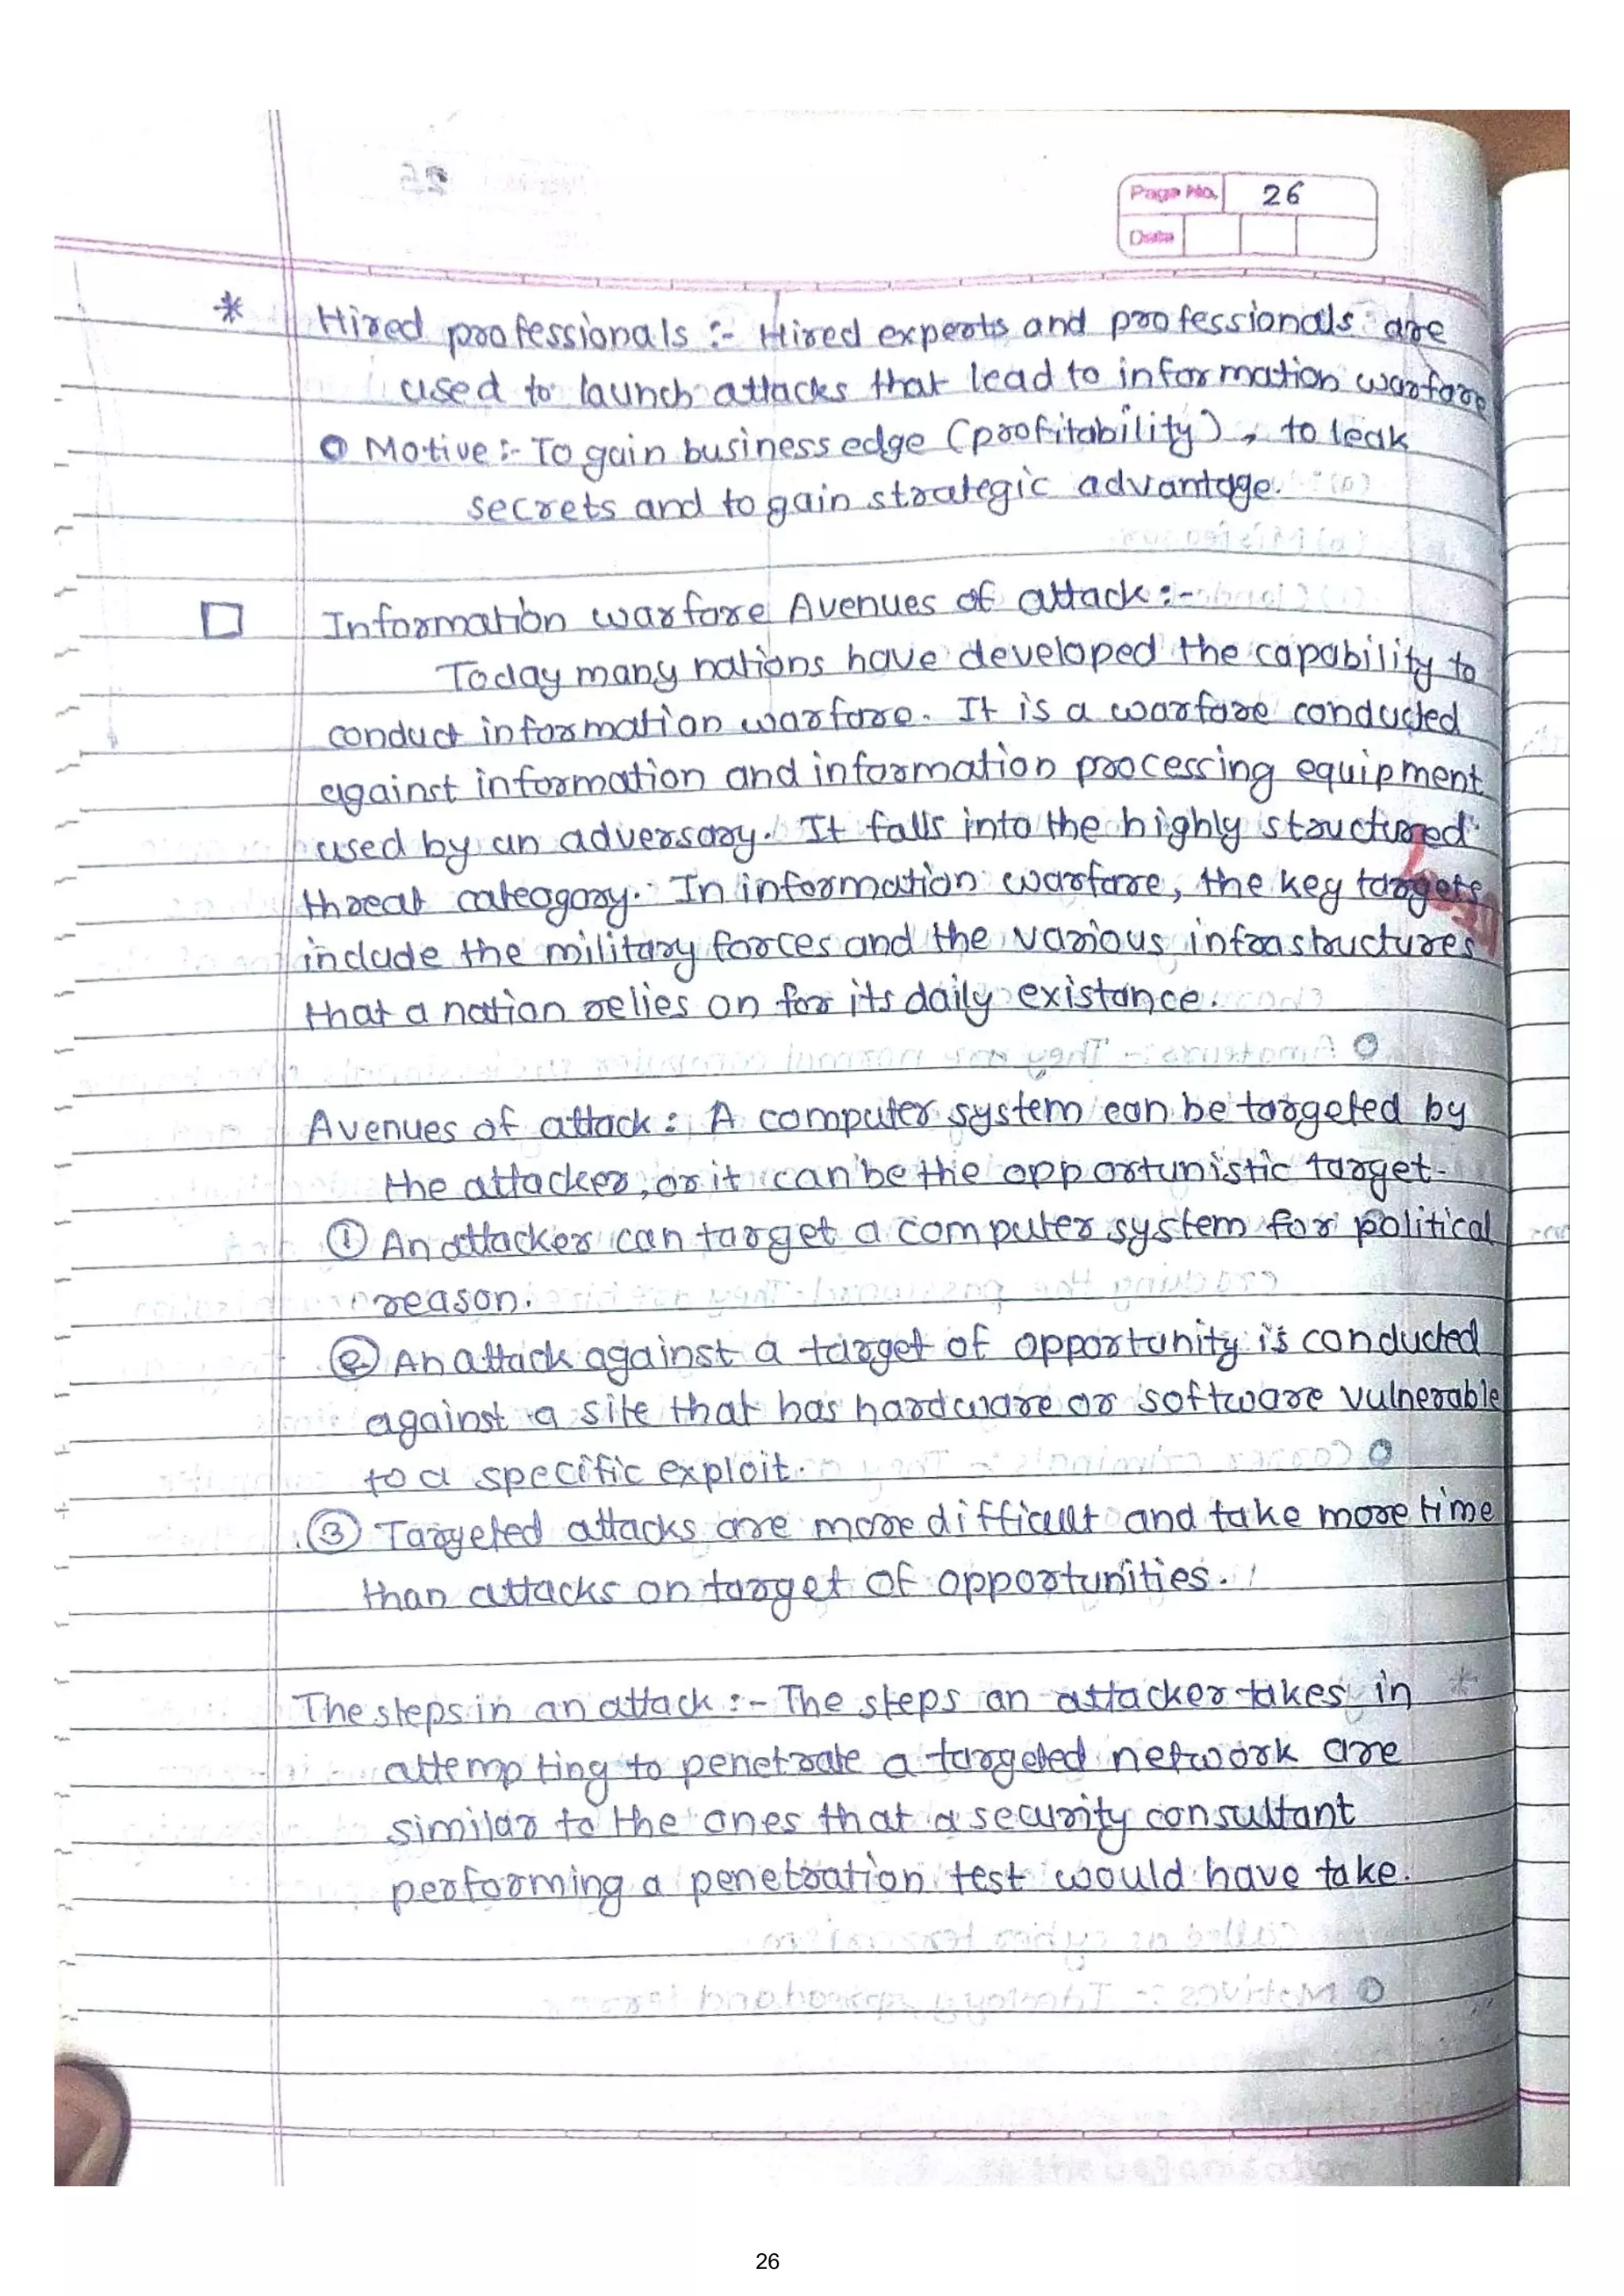 Page No. 26
Date
* Hired professionals :- Hired experts and professionals are
used to launch attacks that lead to information warfare
o Motive :- To gain business edge (profitability), to leak
secrets and to gain strategic advantage.
□ Information warfare Avenues of attack :-
Today many nations have developed the capability to
conduct information warfare. It is a warfare conducted
against information and information processing equipment
used by an adversary. It falls into the highly structured
threat cateogory. In information warfare, the key targets
include the military forces and the various infrastructures
that a nation relies on for its daily existance.
Avenues of attack : A computer system can be targeted by
the attacker, or it can be the opportunistic target.
① An attacker can target a computer system for political
reason.
② An attack against a target of opportunity is conducted
against a site that has hardware or software vulnerable
to a specific exploit.
③ Targeted attacks are more difficult and take more time
than attacks on target of opportunities.
The steps in an attack :- The steps an attacker takes in
attempting to penetrate a targeted network are
similar to the ones that a security consultant
performing a penetration test would have take.
26